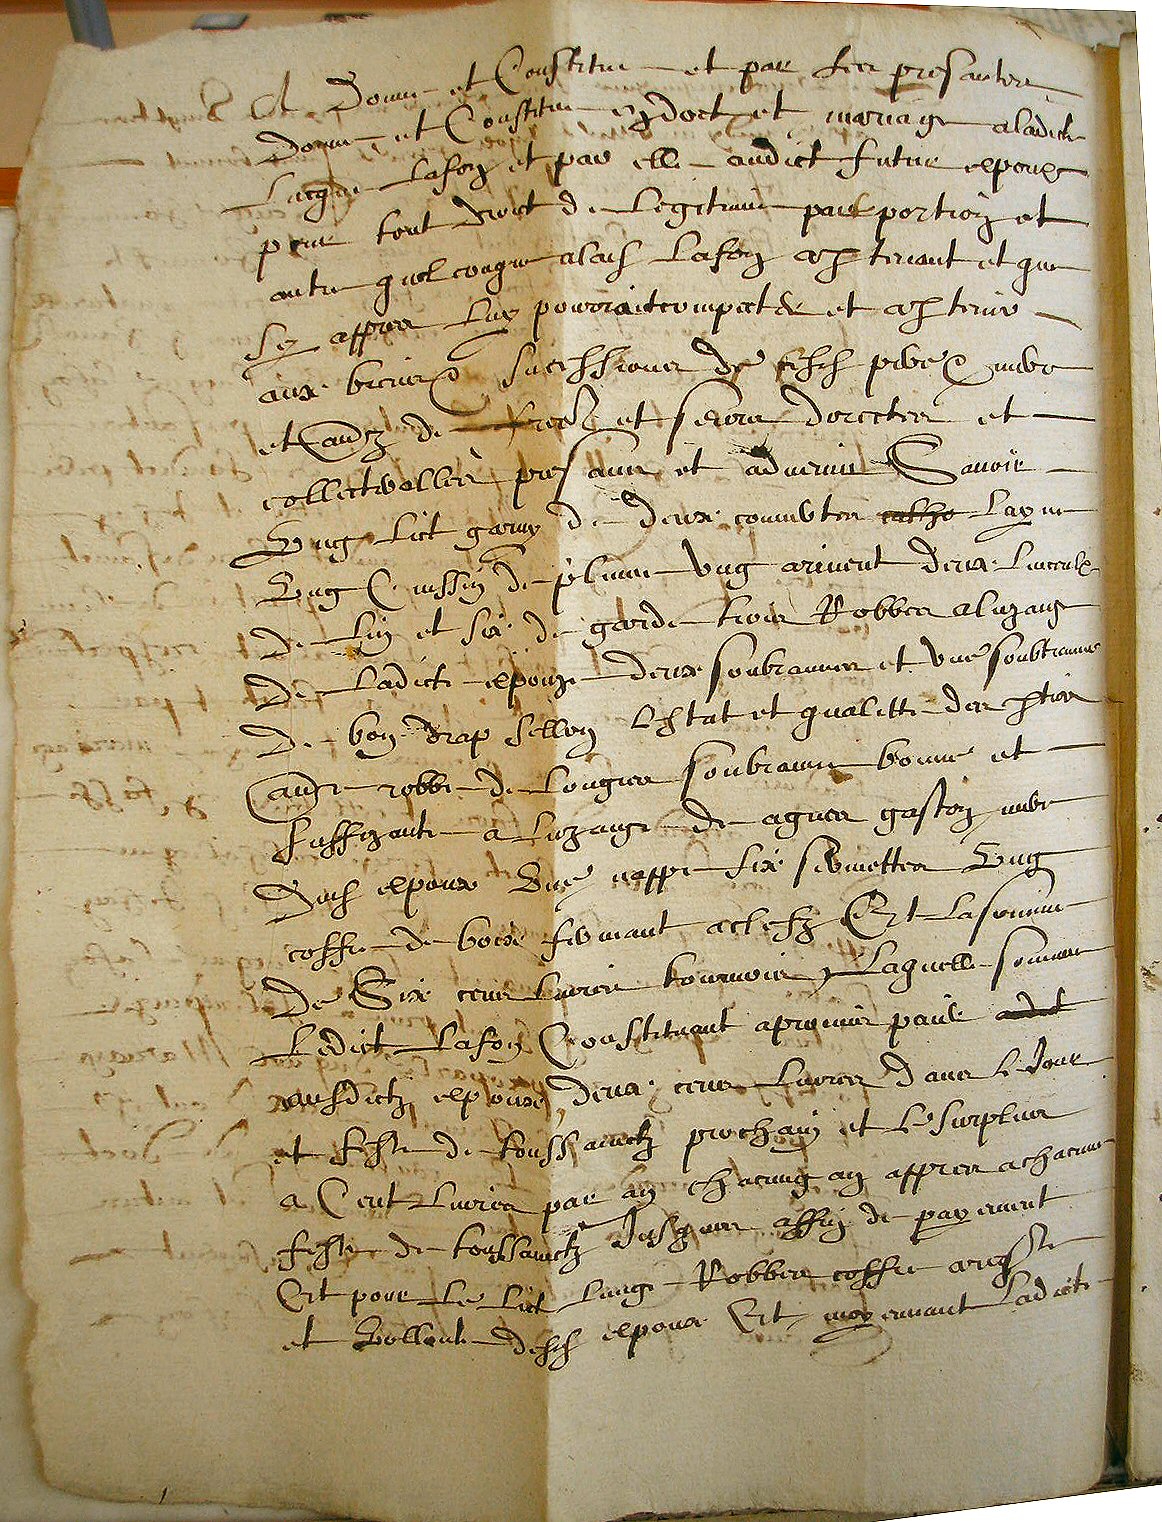 A donne et Constitue et par ses presantes
donne et Constitue en doct et mariage a ladicte
Lacque Lafon et par elle audict futur espoux
pour tout droict de Legitime part portion et
autre quelconque alad Lafon aptenant et que
sy appres Luy pouroit competer et aptenir
aux biens sucessions de sesd pere mere
et autz de freres et seurs dorettes et
collectralles presans et advenir Savoir
Ung lict garny de deux couvertes Layne
Ung Cuissin de plume ung arivent deux Linceulx
de Lin et six de garde trois Robbes a luzaige
de Ladicte espouze deux soubrannes et une soubtranne
de bon drap sellon Lestat et qualitte des pties
autre robbe de Longues soubranne bonne et
suffizante a luzaige de agnes gaston mere
dud espoux Une nappe six serviettes Ung
coffre de bois fermant a clefz Et La somme
de Six cens Livres tournois Laquelle somme
Ledict Lafon Constituant a promis paier
ausdictz espoux deux cens Livres dans Le Jour
et feste de toussainctz prochain et Le surplus
a Cent Livres par an chacung an appres a chacune
feste de toussainctz Jusques affin de payement
Et pour Le Lict Linge Robbes coffre a reqste
et Vollonte desd espoux Et moyennant Ladicte